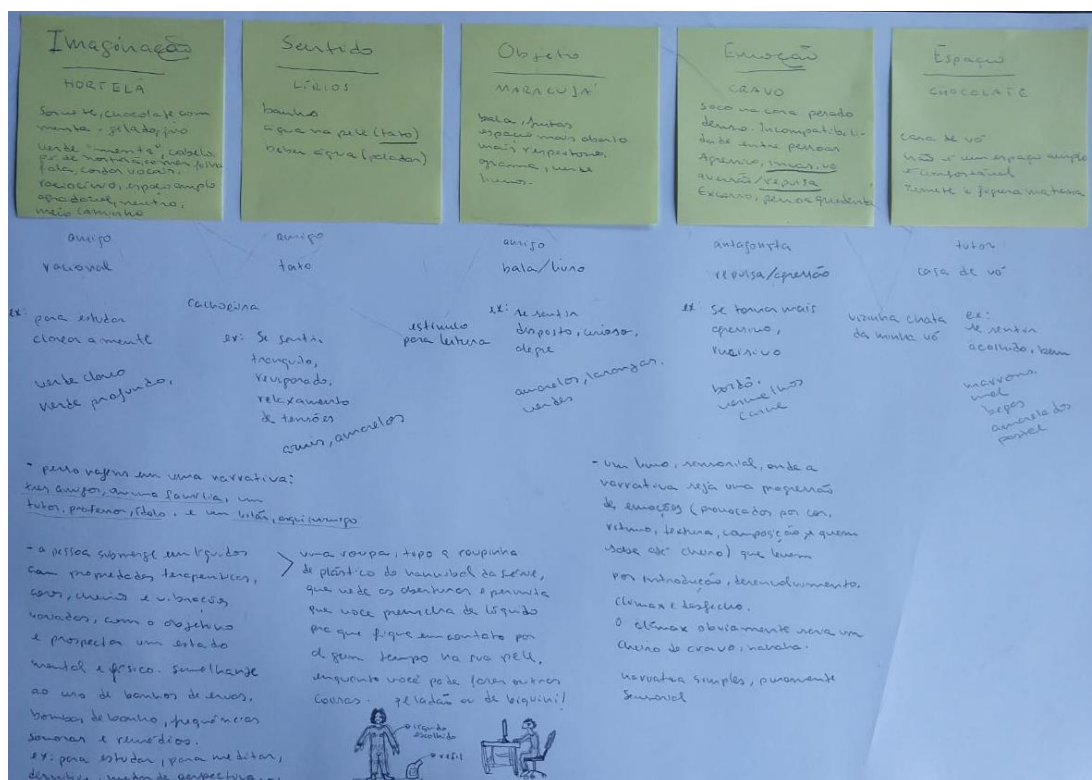 Imaginação
HORTELÃ
Sorvete, chocolate com
menta, gelado, frio
verde "menta", cabelo,
pé de hortelã, comer folha
fala, cordas vocais,
raciocínio, espaço amplo
agradável, neutro,
meio caminho
Sentido
LÍRIOS
banho
água na pele (tato)
beber água (paladar)
Objeto
MARACUJÁ
bala, frutas
espaço mais aberto
mais respeitoso,
verde
livros.
Emoção
CRAVO
soco na cara pesado
denso. Incompatibili-
dade entre pessoas
Agressivo,
aversão/repulsa
Escasso,
Espaço
CHOCOLATE
casa de vó
não é um espaço amplo
é confortável
remete a figura materna
amigo
racional
amigo
tato
amigo
bala/livro
antagonista
repulsa/agressão
tutor
casa de vó
cachoeira
estímulo
para leitura
vizinha chata
da minha vó
ex: para estudar
clarear a mente
verde claro
verde profundo,
ex: Se sentir
tranquilo,
revigorado,
relaxamento
de tensões
azuis, amarelos
ex: se sentir
disposto, curioso,
alegre
amarelos, laranjas,
verdes
ex: se tornar mais
agressivo,
incisivo
bordô,
vermelhos
carne
ex:
se sentir
acolhido, bem
marrons,
mel
beges
amarelados
pastel
- personagens em uma narrativa:
três amigos, ou uma família, um
tutor, professor, ídolo, e um vilão, arqui-inimigo
- a pessoa submerge em líquidos
com propriedades terapêuticas,
cores, cheiros e vibrações
variados, com o objetivo
e prospectar um estado
mental e físico. semelhante
ao uso de banhos de ervas,
bombas de banho, frequências
sonoras e remédios.
ex: para estudar, para meditar,
> uma roupa, tipo a roupinha
de plástico do hannibal da série,
que vede as aberturas e permita
que você preencha de líquido
pra que fique em contato por
algum tempo na sua pele,
enquanto você pode fazer outras
coisas. peladão ou de biquini!
líquido
escolhido
refil
- um livro, sensorial, onde a
narrativa seja uma progressão
de emoções (provocados por cor,
ritmo, textura, composição, e quem
sabe até cheiro) que levem
por introdução, desenvolvimento,
clímax e desfecho.
O clímax obviamente seria um
cheiro de cravo, hahaha.
narrativa simples, puramente
sensorial